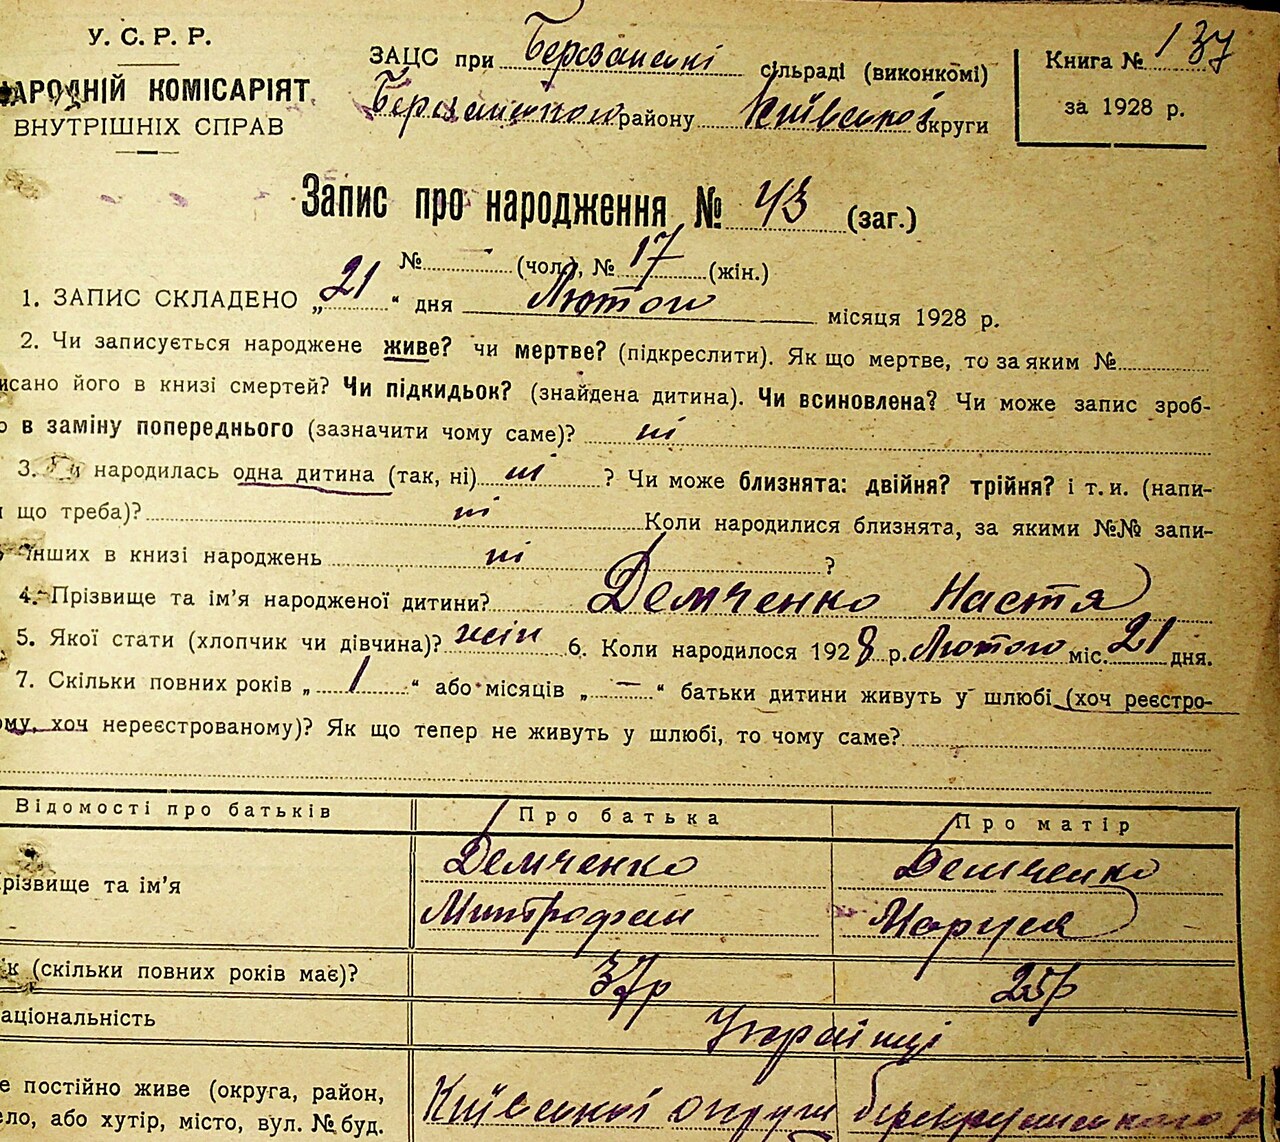 У. С. Р. Р.
НАРОДНІЙ КОМІСАРІЯТ
ВНУТРІШНІХ СПРАВ
ЗАЦС при Березанські сільраді (виконкомі)
Березанського району Київської округи
Книга № 137
за 1928 р.
Запис про народження № 43 (заг.)
№ — (чол.), № 17 (жін.)
1. ЗАПИС СКЛАДЕНО „21“ дня Лютого місяця 1928 р.
2. Чи записується народжене живе? чи мертве? (підкреслити). Як що мертве, то за яким №
исано його в книзі смертей? Чи підкидьок? (знайдена дитина). Чи всиновлена? Чи може запис зроб-
о в заміну попереднього (зазначити чому саме)? ні
3. Чи народилась одна дитина (так, ні) ні ? Чи може близнята: двійня? трійня? і т. и. (напи-
и що треба)? ні Коли народилися близнята, за якими №№ запи-
інших в книзі народжень ні ?
4. Прізвище та ім’я народженої дитини? Демченко Настя
5. Якої стати (хлопчик чи дівчина)? жін 6. Коли народилося 1928 р. Лютого міс. 21 дня.
7. Скільки повних років „ 1 “ або місяців „ — “ батьки дитини живуть у шлюбі (хоч реєстро-
ому, хоч нереєстрованому)? Як що тепер не живуть у шлюбі, то чому саме?
Відомості про батьків Про батька Про матір
різвище та ім’я Демченко Демченко
Митрофан Маруся
к (скільки повних років має)? 37р 25р
аціональність Українці
е постійно живе (округа, район, Київської округи
ело, або хутір, місто, вул. № буд.